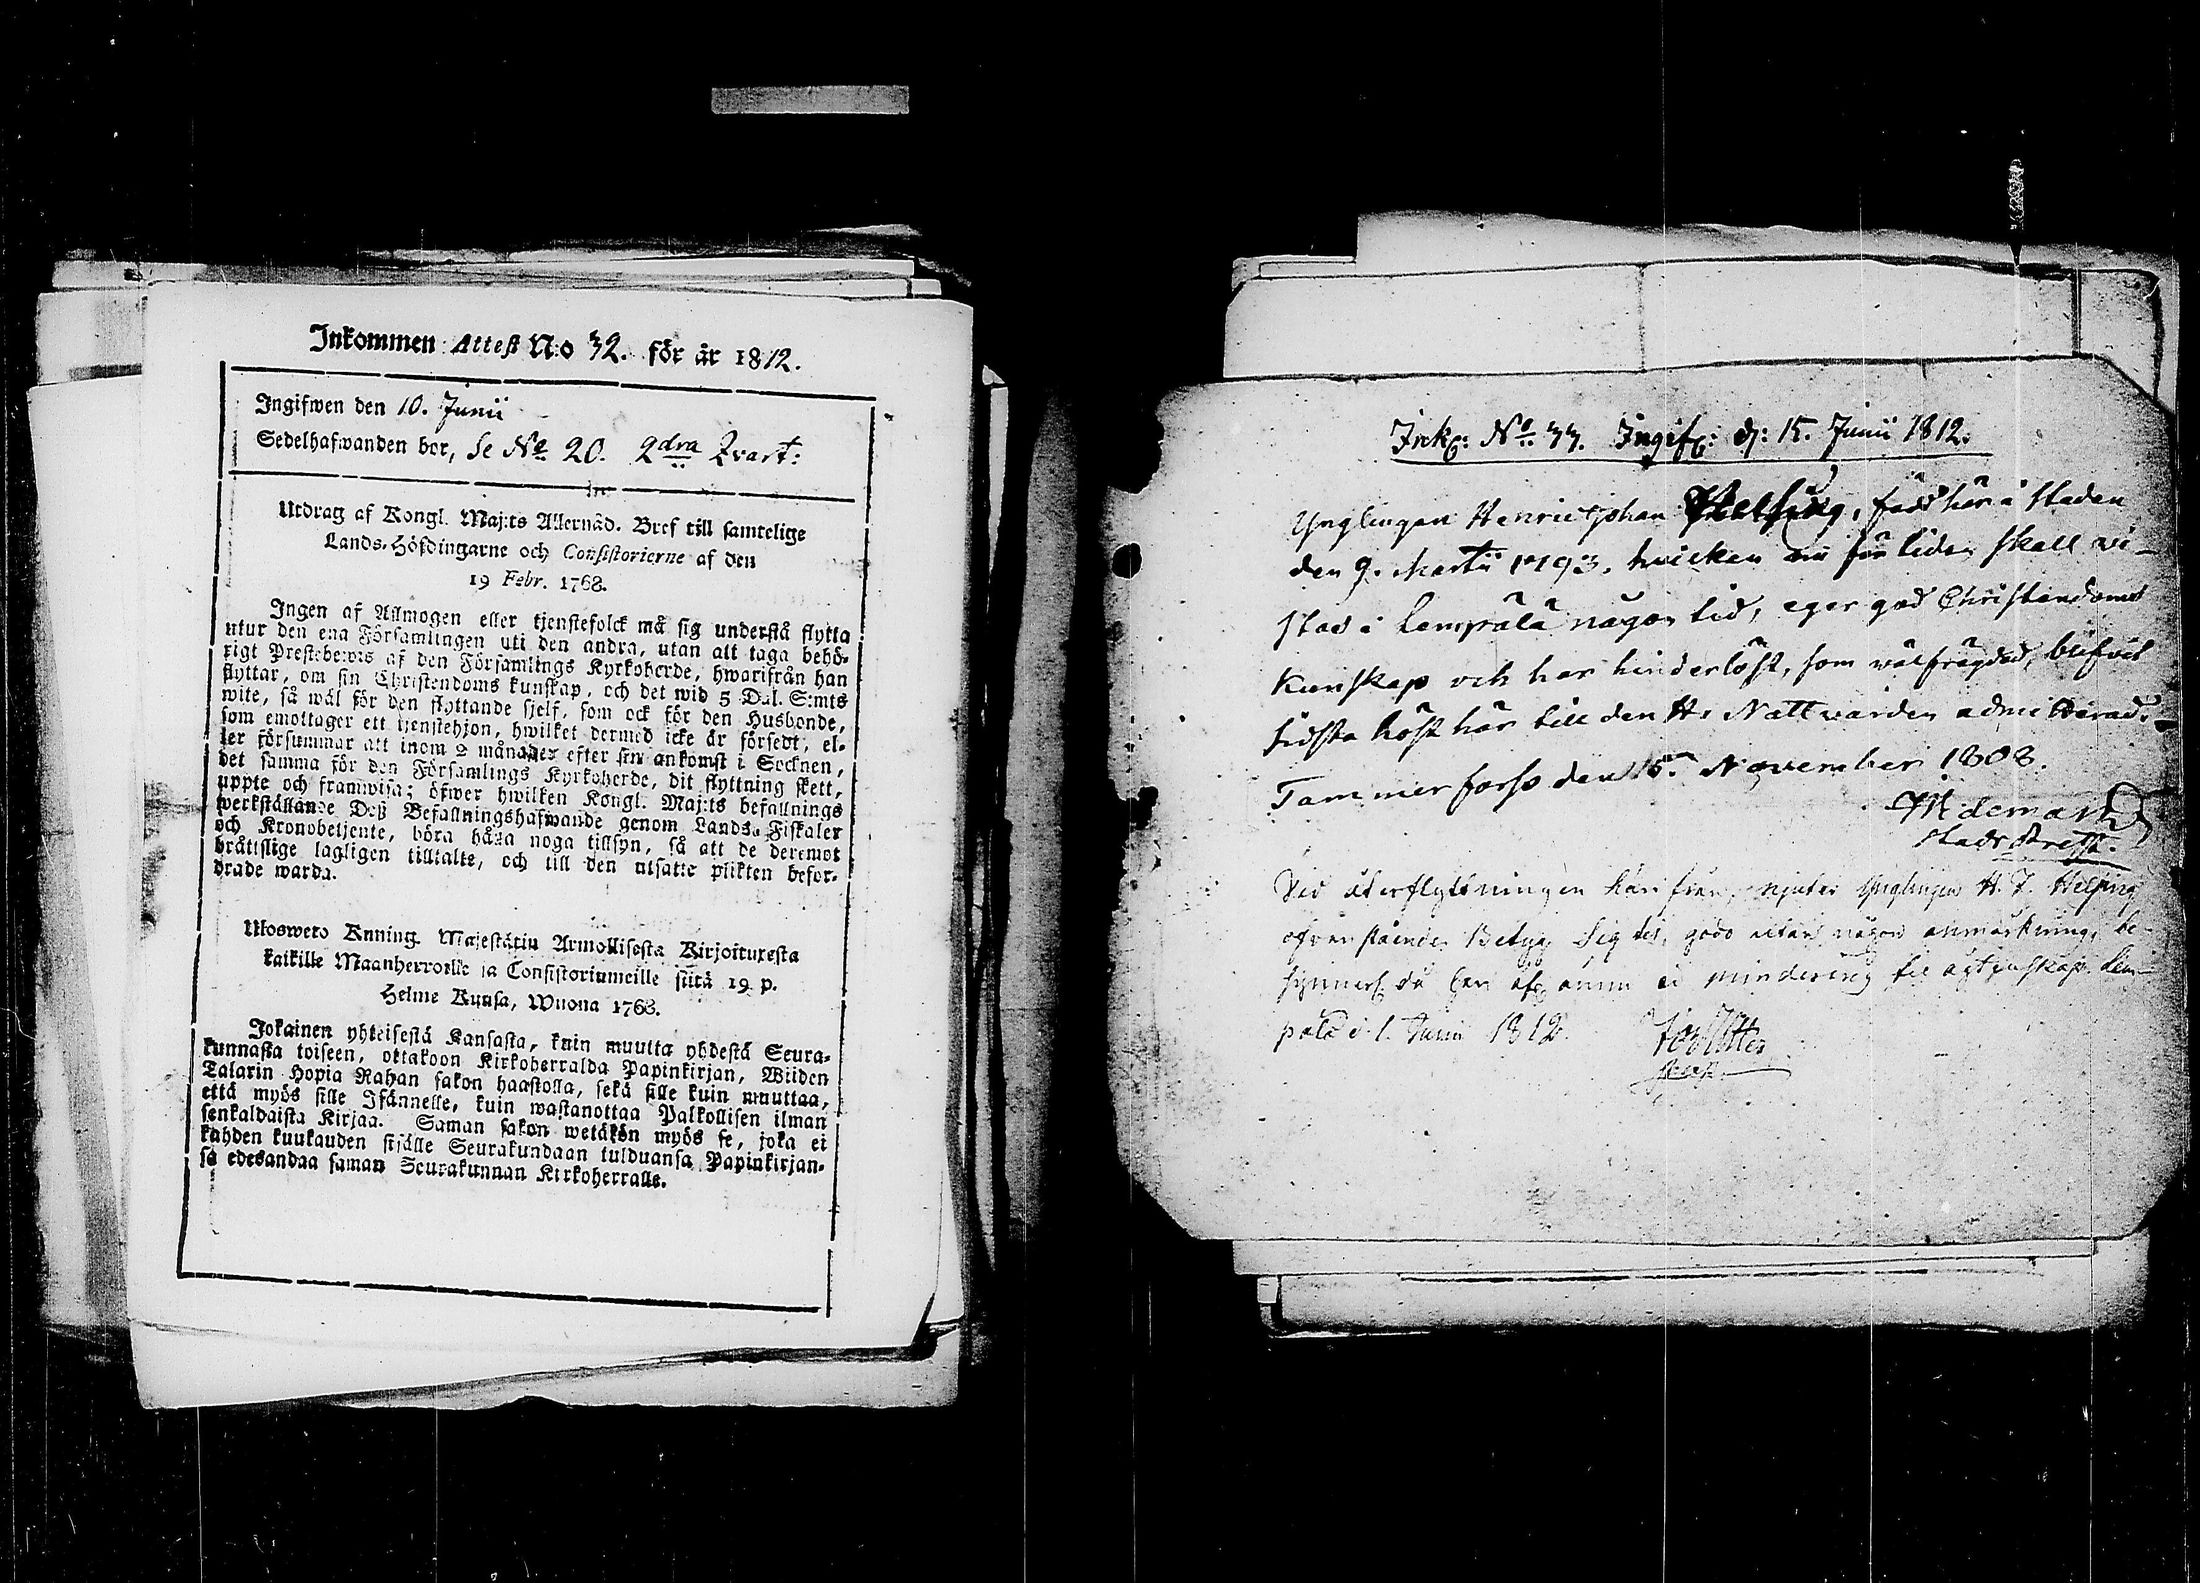 Inkommen Attest N:o 32. för år 1812.
Ingifwen den 10. Junii
Sedelhafwanden bor, se No 20. 2dra Qvart:
Utdrag af Kongl. Maj:ts Allernåd. Bref till samtelige
Lands-Höfdingarne och Consistorierne af den
19 Febr. 1768.
Ingen af Allmogen eller tjenstefolck må sig understå flytta
utur den ena Församlingen uti den andra, utan att taga behö-
rigt Prestebewis af den Församlings Kyrkoherde, hwarifrån han
flyttar, om sin Christendoms kunskap, och det wid 5 Dal. S:mts
wite, så wäl för den flyttande sjelf, som ock för den Husbonde,
som emottager ett tjenstehjon, hwilket dermed icke är försedt, el-
ler försummar att inom 2 månader efter sin ankomst i Socknen,
det samma för den Församlings Kyrkoherde, dit flyttning skett,
uppte och framwisa; öfwer hwilken Kongl. Maj:ts befallnings
werkställande Deß Befallningshafwande genom Lands-Fiskaler
och Kronobetjente, böra hålla noga tillsyn, så att de deremot
bråttslige lagligen tilltalte, och till den utsatte plikten befor-
drade warda.
Ulosweto Kuning. Majestätin Armollisesta Kirjoituxesta
kaikille Maanherroille ja Consistoriumeille siitä 19 p.
Helme Kuusa, Wuona 1768.
Jokainen yhteisestä Kansasta, kuin muutta yhdestä Seura-
kunnasta toiseen, ottakoon Kirkoherralda Papinkirjan, Wiiden
Talarin Hopia Rahan sakon haastolla, sekä sille kuin muuttaa,
että myös sille Isännelle, kuin wastanottaa Palkollisen ilman
senkaldaista Kirjaa. Saman sakon wetäkön myös se, joka ei
kahden kuukauden sisälle Seurakundaan tulduansa Papinkirjan-
sa edesandaa saman Seurakunnan Kirkoherralle.
Ink: No 33. Ingif: d: 15. Junii 1812.
Ynglingen Henric Johan Helsing, född här i staden
den 9. Martii 1793, hvilken nu för tiden skall vi-
stas i Lempälä någon tid, eger god Christendoms
kunskap och har hinderlöst, som välfrägdad, blifvit
sidsta höst här till den H. Nattvarden admitterad.
Tammerforss den 15 November 1808.
Widemark
Vid återflyttningen härifrån, njuter Ynglingen H. J. Helsing
ofvanstående Betyg sig till godo utan någon anmärkning, be-
Lem-
pälä d. 1. Junii 1812.